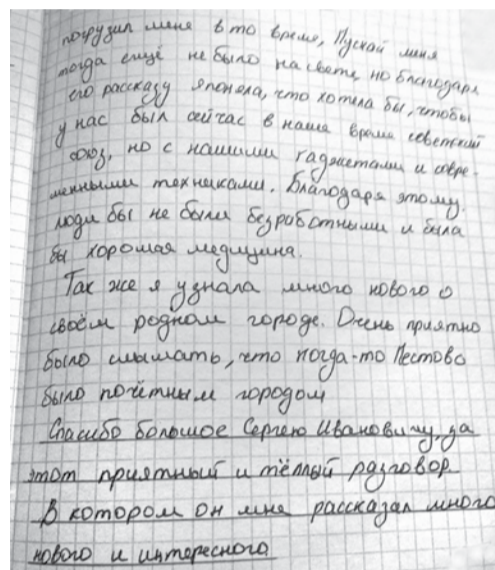 погрузил меня в то время, Пускай меня
тогда ещё не было на свете, но благодаря
его рассказу я поняла, что хотела бы, чтобы
у нас был сейчас в наше время советский
союз, но с нашими гаджетами и совре-
менными техниками. Благодаря этому,
люди бы не были безработными и была
бы хорошая медицина.
Так же я узнала много нового о
своём родном городе. Очень приятно
было слышать, что когда-то Пестово
было почётным городом
Спасибо большое Сергею Ивановичу, за
этот приятный и тёплый разговор
В котором он мне рассказал много
нового и интересного